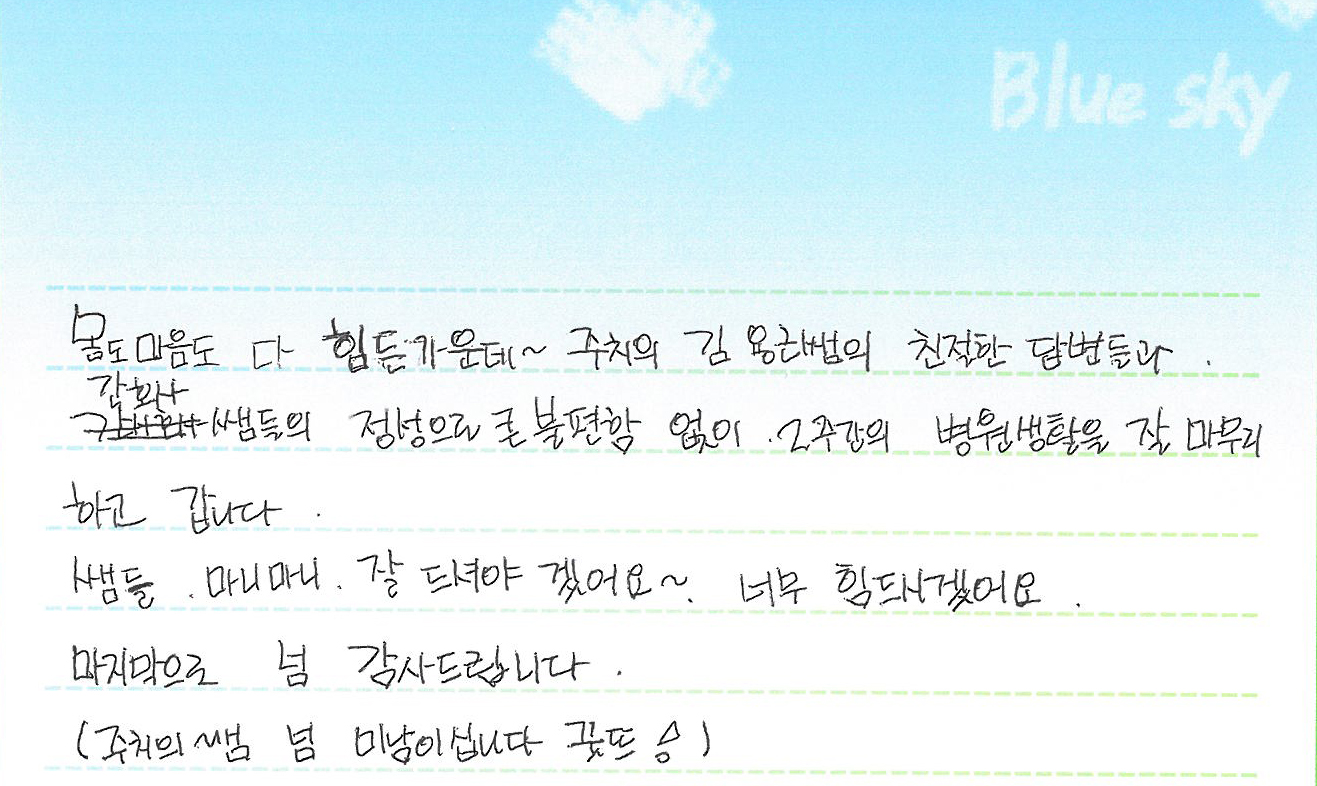 Blue sky
몸도마음도 다 힘든가운데~ 주치의 김용근쌤의 친절한 답변들과.
간호사
쌤들의 정성으로 큰불편함 없이. 2주간의 병원생활을 잘 마무리
하고 갑니다.
쌤들. 마니마니. 잘 드셔야 겠어요~. 너무 힘드시겠어요.
마지막으로 넘 감사드립니다.
(주치의쌤 넘 미남이십니다 굿뜨 승)